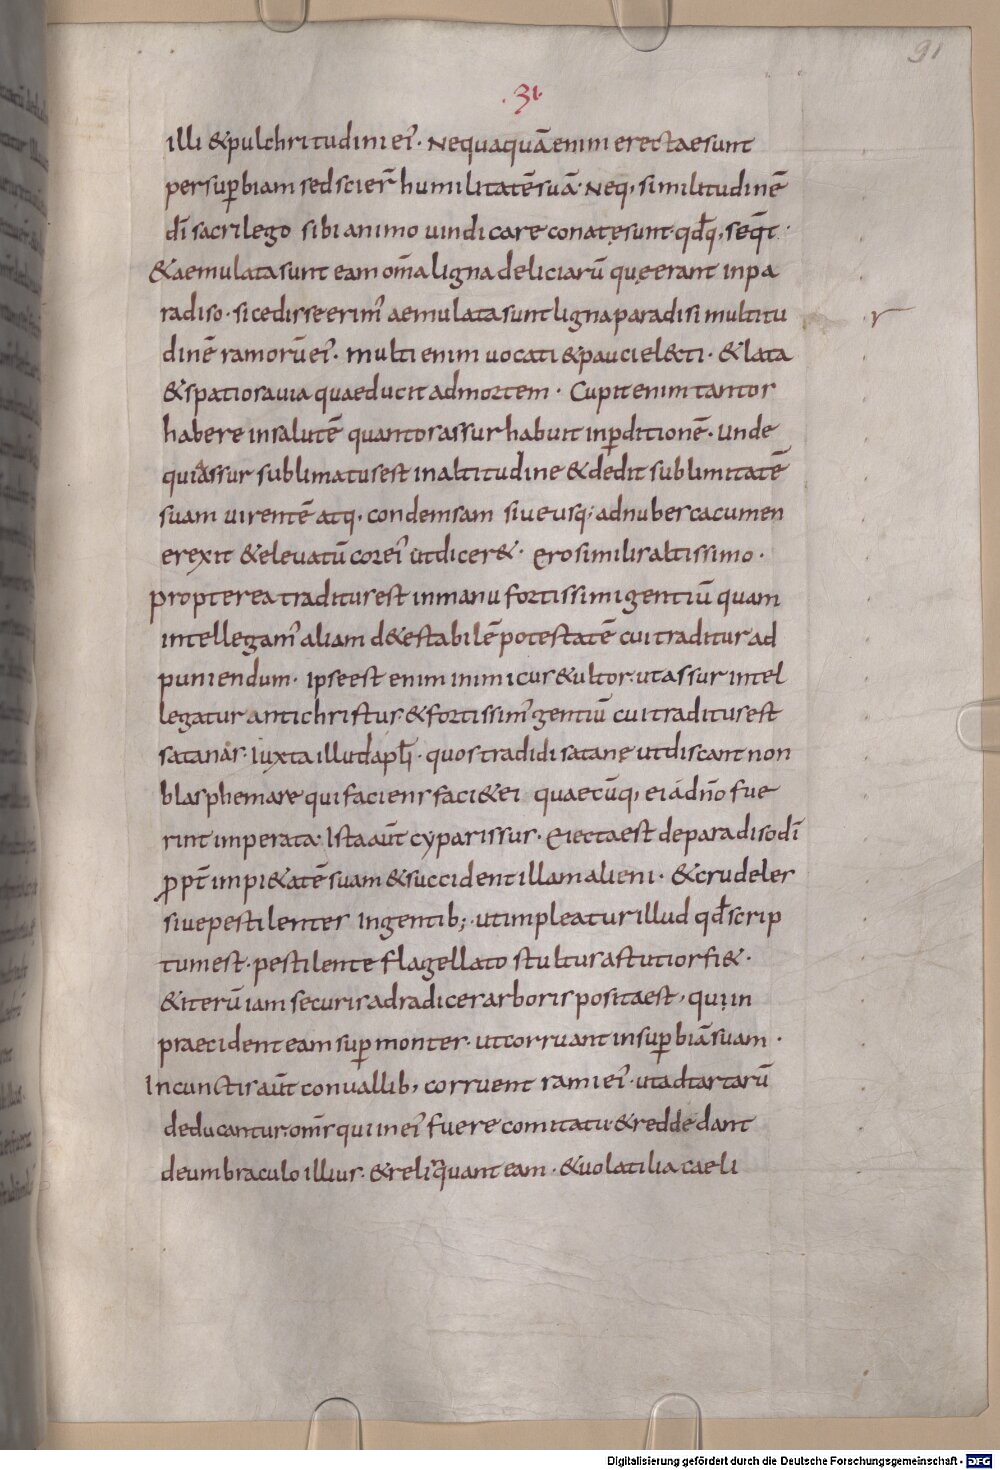 91
·31·
illi & pulchritudini ei᷒· Nequaquā enim erectae sunt
per supbiam sed scier̄ humilitatē suā· Neq, similitudinē
dī sacrilego sibi animo uindicare conatę sunt· qđq, seq̄t·
& aemulata sunt eam om̄a ligna deliciarū quę erant in pa
radiso· sic edisserim᷒ aemulata sunt ligna paradisi multitu
dinē ramorū ei᷒· multi enim uocati & pauci el&ti· & lata
& spatiosa uia quae ducit ad mortem· Cupit enim tantos
habere in salutē quantos assur habuit in pditionē· Unde
quia assur sublimatus est in altitudine & dedit sublimitatē
suam uirentē atq, condemsam siue usq; ad nubes cacumen
erexit & eleuatū cor ei᷒ ut dicer&· Ero similis altissimo·
propterea traditus est in manu fortissimi gentiū quam
intellegam᷒ aliam d&estabilē potestatē cui traditur ad
puniendum· Ipse est enim inimicus & ultor· ut assur intel
legatur antichristus· & fortissim᷒ gentiū cui traditus est
satanas· Iuxta illud apłi· quos tradidi satanę ut discant non
blasphemare qui faciens faci& ei quaecūq, ei á dn̄o fue
rint imperata· Ista aūt cyparissus· Eiecta est de paradiso dī
propt̄ impi&atē suam & succident illam alieni· & crudeles
siue pestilentes In gentib;· ut impleatur illud qđ scrip
tum est· pestilente flagellato stultus astutior fi&·
& iterū iam securis ad radices arboris posita est, qui in
praecident eam sup montes· ut corruant in supbiā suam·
In cunctis aūt conuallib, corruent rami ei᷒· ut ad tartarū
deducantur om̄s qui in ei᷒ fuere comitatu & reddedant
de umbraculo illius· & reliquant eam· & uolatilia caeli
r
Digitalisierung gefördert durch die Deutsche Forschungsgemeinschaft - DFG